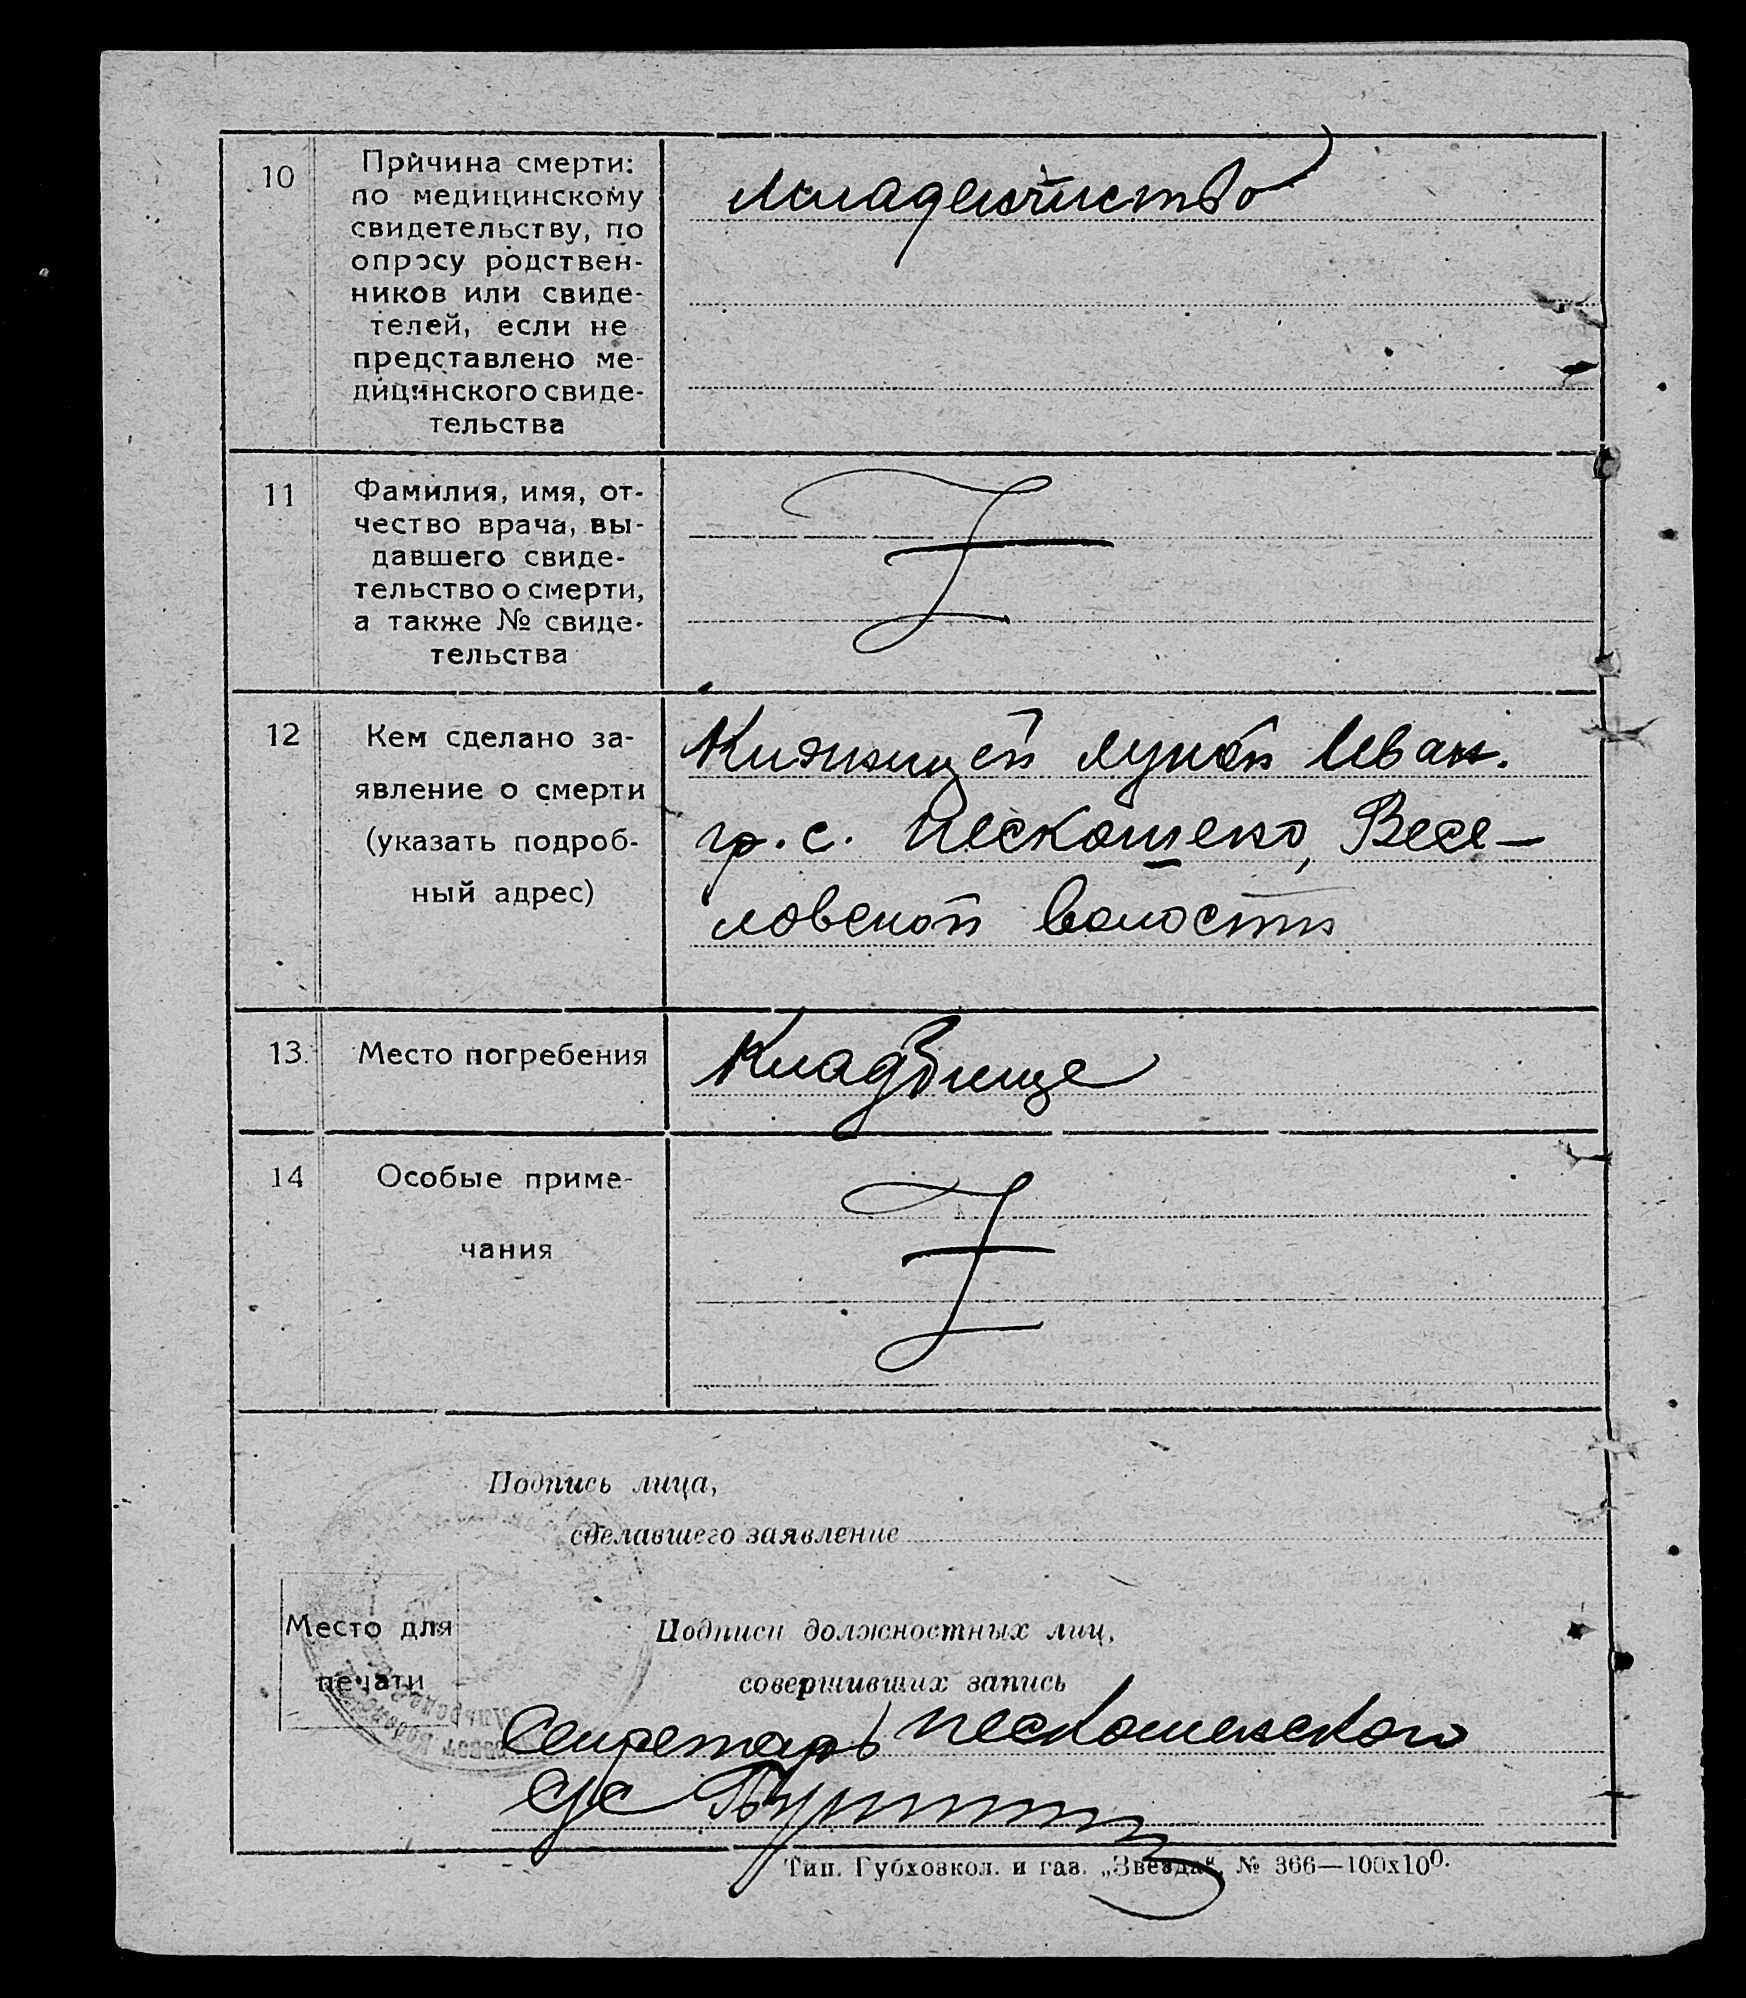 10
Причина смерти:
по медицинскому
свидетельству, по
опросу родствен-
ников или свиде-
телей, если не
представлено ме-
дицинского свиде-
тельства
младенчиство
11
Фамилия, имя, от-
чество врача, вы-
давшего свиде-
тельство о смерти,
а также № свиде-
тельства
12
Кем сделано за-
явление о смерти
(указать подроб-
ный адрес)
Княжицей Лукой Иван.
гр. с. Пескошено, Весе-
ловской волости
13.
Место погребения
Кладбище
14
Особые приме-
чания
Подпись лица,
сделавшего заявление
Место для
печати
Подписи должностных лиц,
совершивших запись
Секретарь Пескошенского
с/с
Тип. Губхозкол. и газ. „Звезда“, № 366—100х100.